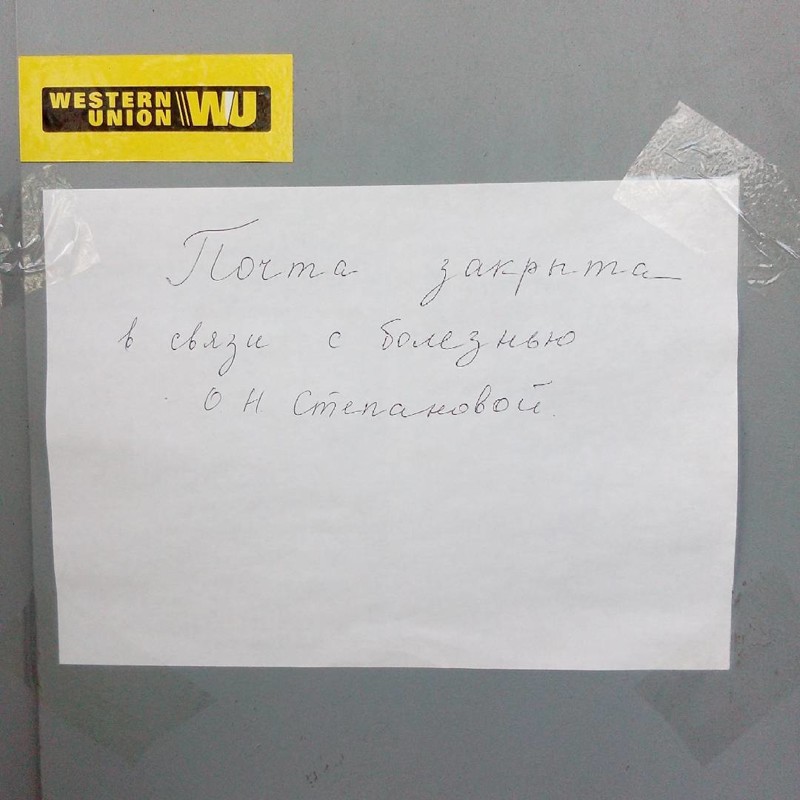 WESTERN
UNION WU
Почта закрыта
в связи с болезнью
О Н Степановой.